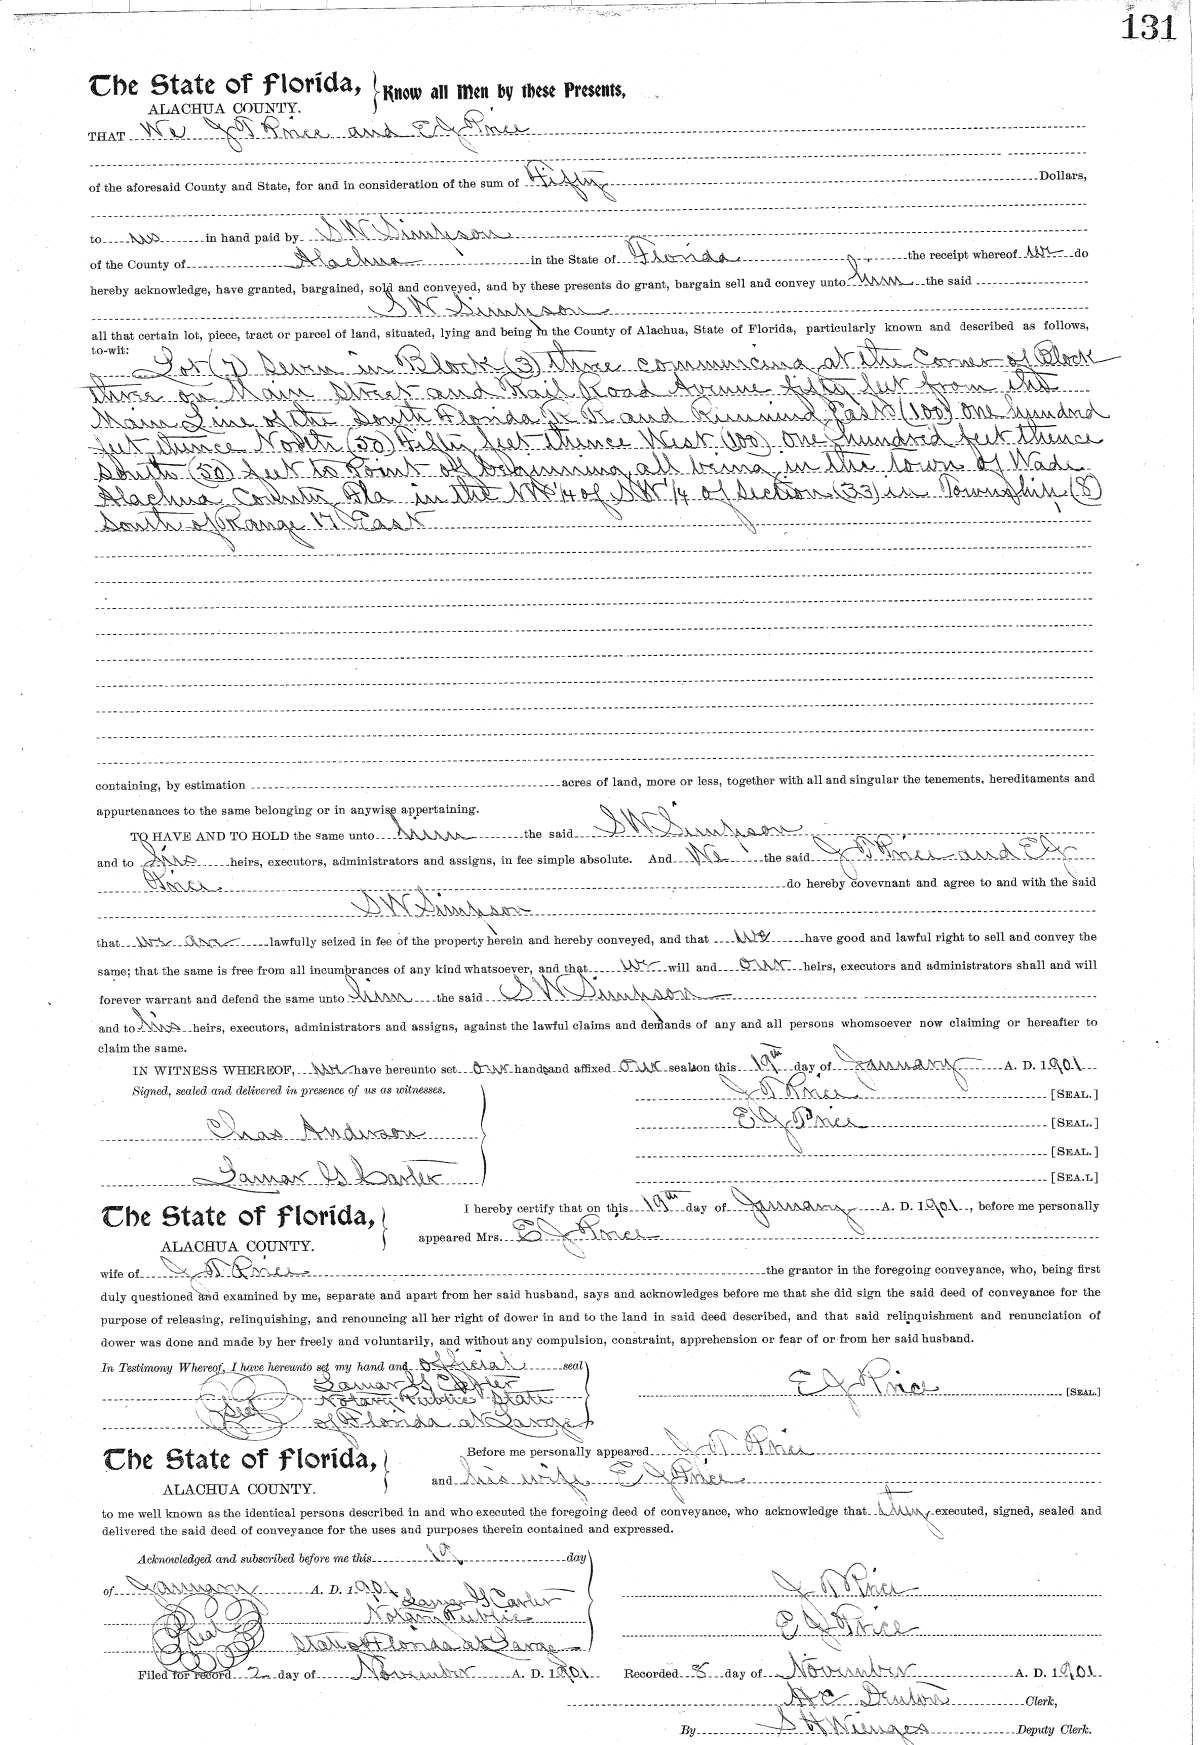 131
The State of Florida, } Know all Men by these Presents,
ALACHUA COUNTY.
THAT We J T Price and E J Price
of the aforesaid County and State, for and in consideration of the sum of Fifty Dollars,
to us in hand paid by S W Simpson
of the County of Alachua in the State of Florida the receipt whereof we do
hereby acknowledge, have granted, bargained, sold and conveyed, and by these presents do grant, bargain sell and convey unto him the said
S W Simpson
all that certain lot, piece, tract or parcel of land, situated, lying and being in the County of Alachua, State of Florida, particularly known and described as follows,
to-wit: Lot (7) Seven in Block (3) three commencing at the Corner of Block
three on Main Street and Rail Road Avenue fifty feet from the
Main Line of the South Florida R R and Running East (100) one hundred
feet thence North (50) Fifty feet thence West (100) one hundred feet thence
South (50) feet to Point of beginning all being in the town of Wade
Alachua County Fla in the NW 1/4 of SW 1/4 of Section (33) in Township (8)
South of Range 17 East
containing, by estimation acres of land, more or less, together with all and singular the tenements, hereditaments and
appurtenances to the same belonging or in anywise appertaining.
TO HAVE AND TO HOLD the same unto him the said S W Simpson
and to his heirs, executors, administrators and assigns, in fee simple absolute. And We the said J T Price and E J
Price do hereby covevnant and agree to and with the said
S W Simpson
that we are lawfully seized in fee of the property herein and hereby conveyed, and that we have good and lawful right to sell and convey the
same; that the same is free from all incumbrances of any kind whatsoever, and that we will and our heirs, executors and administrators shall and will
forever warrant and defend the same unto him the said S W Simpson
and to his heirs, executors, administrators and assigns, against the lawful claims and demands of any and all persons whomsoever now claiming or hereafter to
claim the same.
IN WITNESS WHEREOF, we have hereunto set our hands and affixed our seals on this 19th day of January A. D. 1901
Signed, sealed and delivered in presence of us as witnesses.
J T Price [SEAL.]
Chas Anderson E J Price [SEAL.]
[SEAL.]
Lamar G Carter [SEA.L]
The State of Florida, } I hereby certify that on this 19th day of January A. D. 1901, before me personally
ALACHUA COUNTY. appeared Mrs. E J Price
wife of J T Price the grantor in the foregoing conveyance, who, being first
duly questioned and examined by me, separate and apart from her said husband, says and acknowledges before me that she did sign the said deed of conveyance for the
purpose of releasing, relinquishing, and renouncing all her right of dower in and to the land in said deed described, and that said relinquishment and renunciation of
dower was done and made by her freely and voluntarily, and without any compulsion, constraint, apprehension or fear of or from her said husband.
In Testimony Whereof, I have hereunto set my hand and official seal
Lamar G Carter E J Price [SEAL.]
Seal Notary Public State
of Florida at Large
The State of Florida, } Before me personally appeared J T Price
ALACHUA COUNTY. and his wife E J Price
to me well known as the identical persons described in and who executed the foregoing deed of conveyance, who acknowledge that they executed, signed, sealed and
delivered the said deed of conveyance for the uses and purposes therein contained and expressed.
Acknowledged and subscribed before me this 19 day
of January A. D. 1901 J T Price
Lamar G Carter
Seal Notary Public E J Price
State of Florida at Large
Filed for record 2 day of November A. D. 1901 Recorded 8 day of November A. D. 1901
H C Denton Clerk,
By S H Wienges Deputy Clerk.